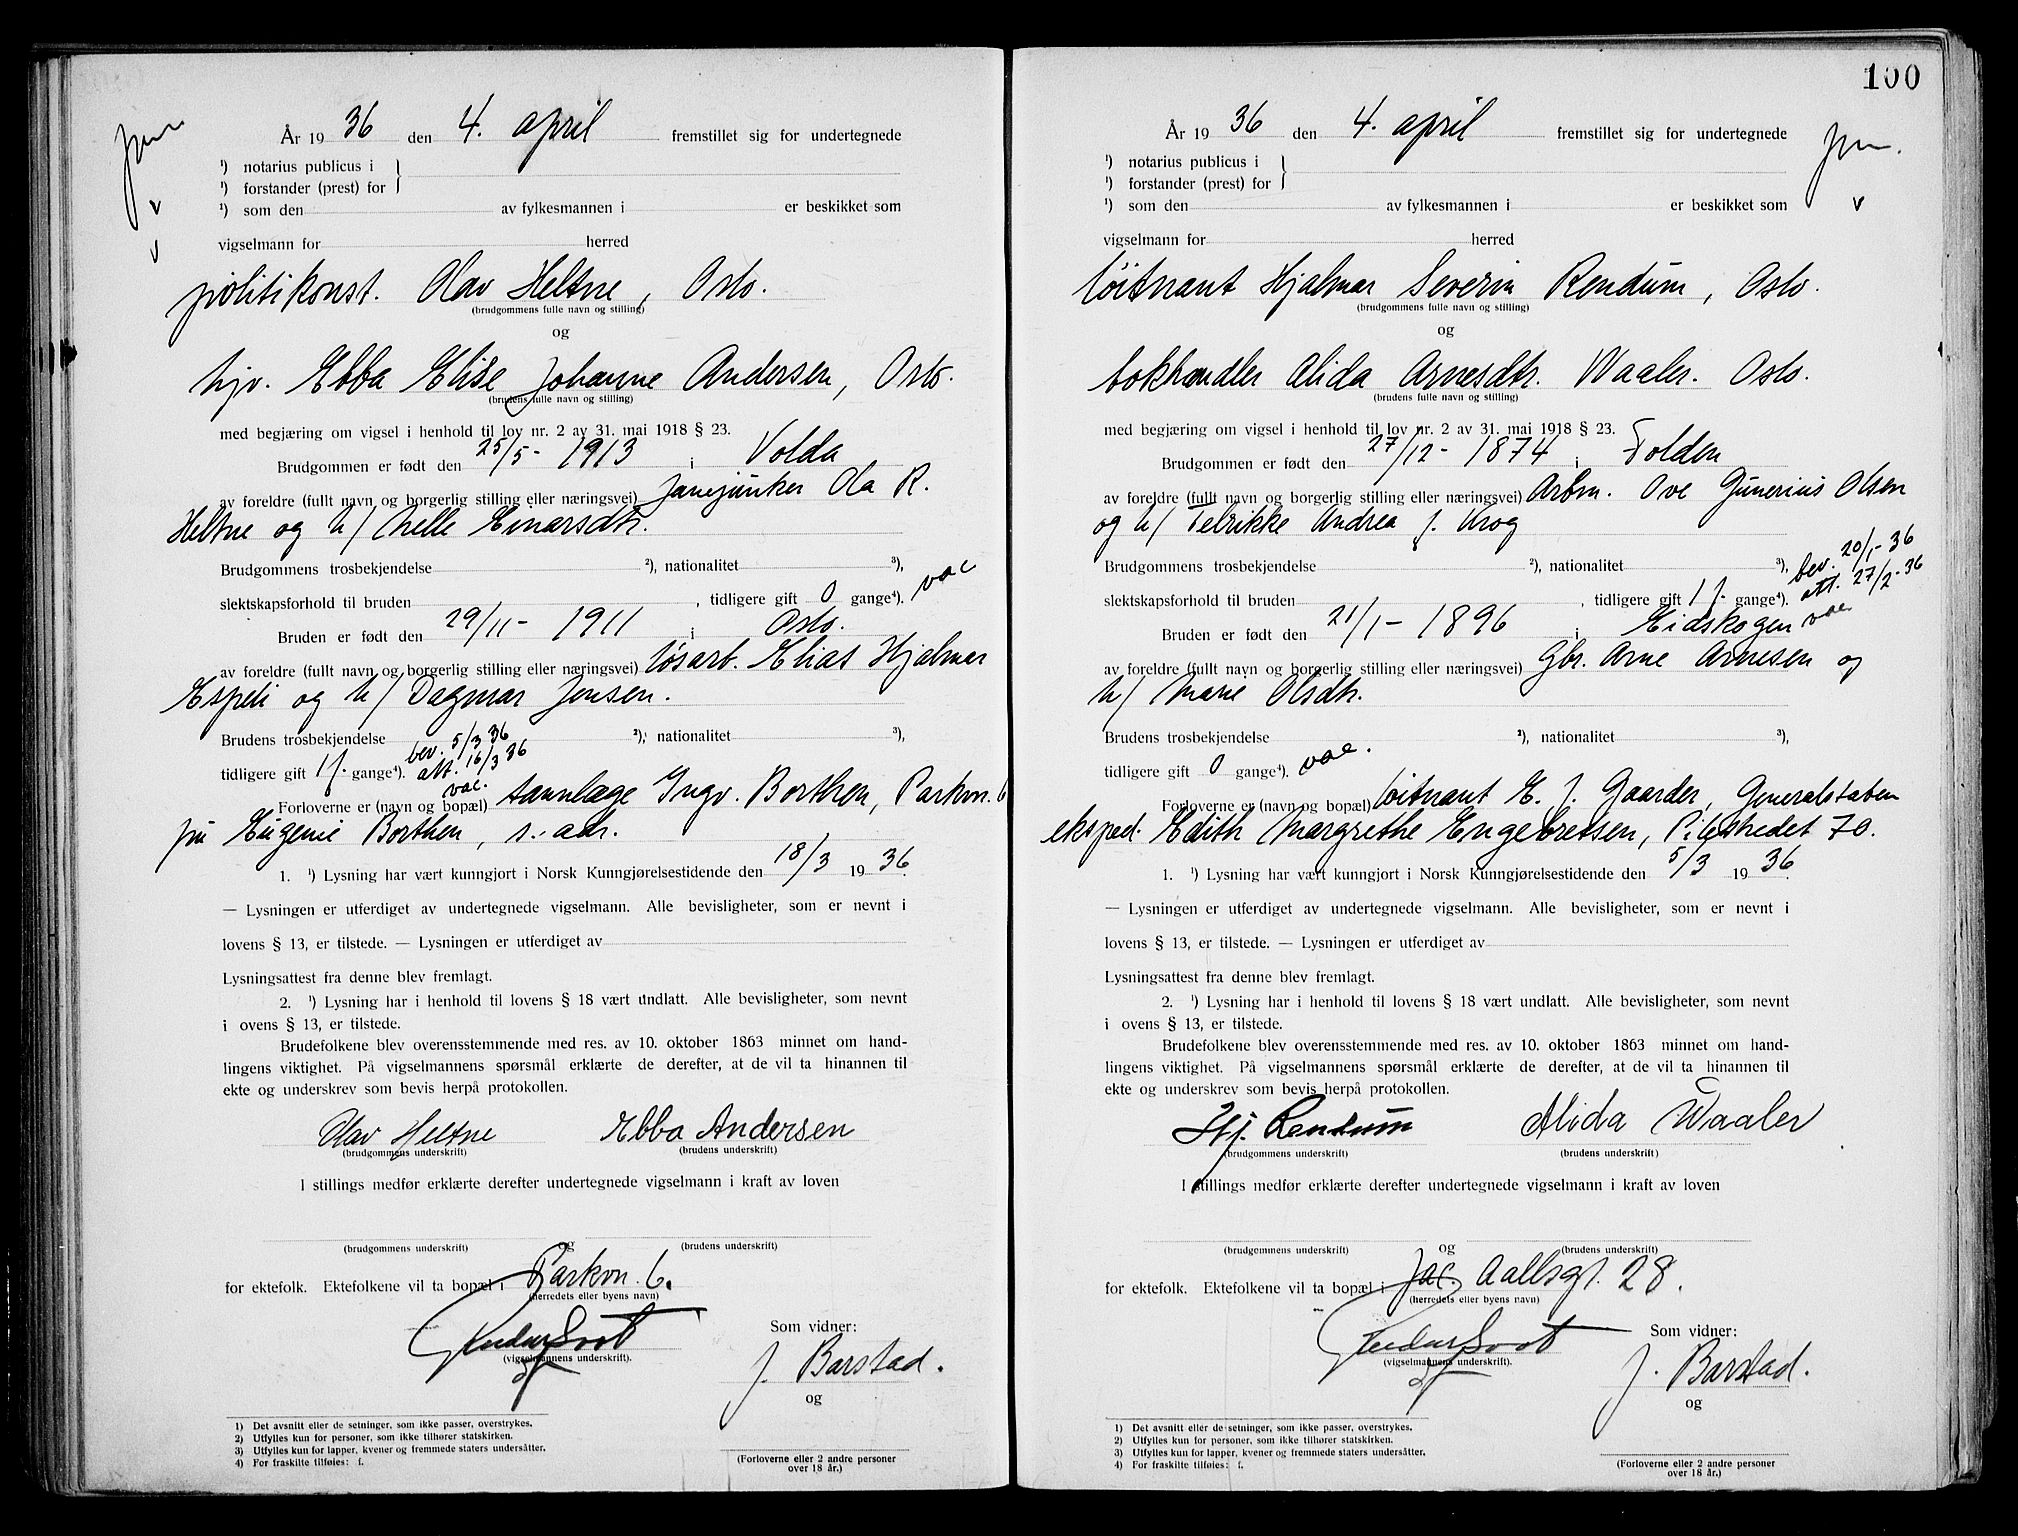 År 19 36 den 4. april fremstillet sig for undertegnede
¹) notarius publicus i
¹) forstander (prest) for
¹) som den av fylkesmannen i er beskikket som
vigselmann for herred
politikonst. Olav Heltne, Oslo.
(brudgommens fulle navn og stilling)
og
hjv. Ebba Elise Johanne Andersen, Oslo.
(brudens fulle navn og stilling)
med begjæring om vigsel i henhold til lov nr. 2 av 31. mai 1918 § 23.
Brudgommen er født den 25/5- 1913 i Volda
av foreldre (fullt navn og borgerlig stilling eller næringsvei) Ola R.
Heltne og h/ Einarsdtr.
Brudgommens trosbekjendelse ²), nationalitet ³),
slektskapsforhold til bruden , tidligere gift 0 gange⁴). vac
Bruden er født den 29/11- 1911 i Oslo.
av foreldre (fullt navn og borgerlig stilling eller næringsvei) løsarb. Elias Hjalmar
Espeli og h/ Dagmar Jensen.
Brudens trosbekjendelse ²), nationalitet ³),
bev. 5/3 36
tidligere gift 1 f. gange⁴). att. 16/3 36
vac.
Forloverne er (navn og bopæl) tannlæge Ingv. Borthen, Parkvn. 6
fru Eugenie Borthen, s. adr.
1. ¹) Lysning har vært kunngjort i Norsk Kunngjørelsestidende den 18/3 19 36.
— Lysningen er utferdiget av undertegnede vigselmann. Alle bevisligheter, som er nevnt i
lovens § 13, er tilstede. — Lysningen er utferdiget av
Lysningsattest fra denne blev fremlagt.
2. ¹) Lysning har i henhold til lovens § 18 vært undlatt. Alle bevisligheter, som nevnt
i ovens § 13, er tilstede.
Brudefolkene blev overensstemmende med res. av 10. oktober 1863 minnet om hand-
lingens viktighet. På vigselmannens spørsmål erklærte de derefter, at de vil ta hinannen til
ekte og underskrev som bevis herpå protokollen.
Olav Heltne Ebba Andersen
(brudgommens underskrift) (brudens underskrift)
I stillings medfør erklærte derefter undertegnede vigselmann i kraft av loven
og
(brudgommens underskrift) (brudens underskrift)
for ektefolk. Ektefolkene vil ta bopæl i Parkvn. 6.
(herredets eller byens navn)
Som vidner:
(vigselmannens underskrift).
J. Barstad.
og
(Forloverne eller 2 andre personer
over 18 år.)
1) Det avsnitt eller de setninger, som ikke passer, overstrykes.
2) Utfylles kun for personer, som ikke tilhører statskirken.
3) Utfylles kun for lapper, kvener og fremmede staters undersåtter.
4) For fraskilte tilføies: f.
100
År 19 36 den 4. april fremstillet sig for undertegnede
¹) notarius publicus i
¹) forstander (prest) for
¹) som den av fylkesmannen i er beskikket som
vigselmann for herred
løitnant Hjalmar Severin Rendum, Oslo.
(brudgommens fulle navn og stilling)
og
bokhandler Alida Arnesdtr. Waaler. Oslo.
(brudens fulle navn og stilling)
med begjæring om vigsel i henhold til lov nr. 2 av 31. mai 1918 § 23.
Brudgommen er født den 27/12- 1874 i Folden
av foreldre (fullt navn og borgerlig stilling eller næringsvei) Arbm. Ove Gunerius Olsen
og h/ Andrea f. Krog
bev. 20/1- 36
Brudgommens trosbekjendelse ²), nationalitet ³),
att. 27/2-36
slektskapsforhold til bruden , tidligere gift 1 f. gange⁴).
vac
Bruden er født den 21/1- 1896 i Eidskogen
av foreldre (fullt navn og borgerlig stilling eller næringsvei) Gbr. Arne Arnesen og
h/ Marie Olsdtr.
Brudens trosbekjendelse ²), nationalitet ³),
tidligere gift 0 gange⁴). vac.
Forloverne er (navn og bopæl) løitnant E. J. Gaarder, Generalstaben
eksped. Edith Margrethe Engebretsen, Pilestredet 70.
1. ¹) Lysning har vært kunngjort i Norsk Kunngjørelsestidende den 5/3 19 36.
— Lysningen er utferdiget av undertegnede vigselmann. Alle bevisligheter, som er nevnt i
lovens § 13, er tilstede. — Lysningen er utferdiget av
Lysningsattest fra denne blev fremlagt.
2. ¹) Lysning har i henhold til lovens § 18 vært undlatt. Alle bevisligheter, som nevnt
i ovens § 13, er tilstede.
Brudefolkene blev overensstemmende med res. av 10. oktober 1863 minnet om hand-
lingens viktighet. På vigselmannens spørsmål erklærte de derefter, at de vil ta hinannen til
ekte og underskrev som bevis herpå protokollen.
Hj. Rendum Alida Waaler
(brudgommens underskrift) (brudens underskrift)
I stillings medfør erklærte derefter undertegnede vigselmann i kraft av loven
og
(brudgommens underskrift) (brudens underskrift)
for ektefolk. Ektefolkene vil ta bopæl i Jac. Aallsgt. 28.
(herredets eller byens navn)
Som vidner:
(vigselmannens underskrift).
J. Barstad.
og
(Forloverne eller 2 andre personer
over 18 år.)
1) Det avsnitt eller de setninger, som ikke passer, overstrykes.
2) Utfylles kun for personer, som ikke tilhører statskirken.
3) Utfylles kun for lapper, kvener og fremmede staters undersåtter.
4) For fraskilte tilføies: f.